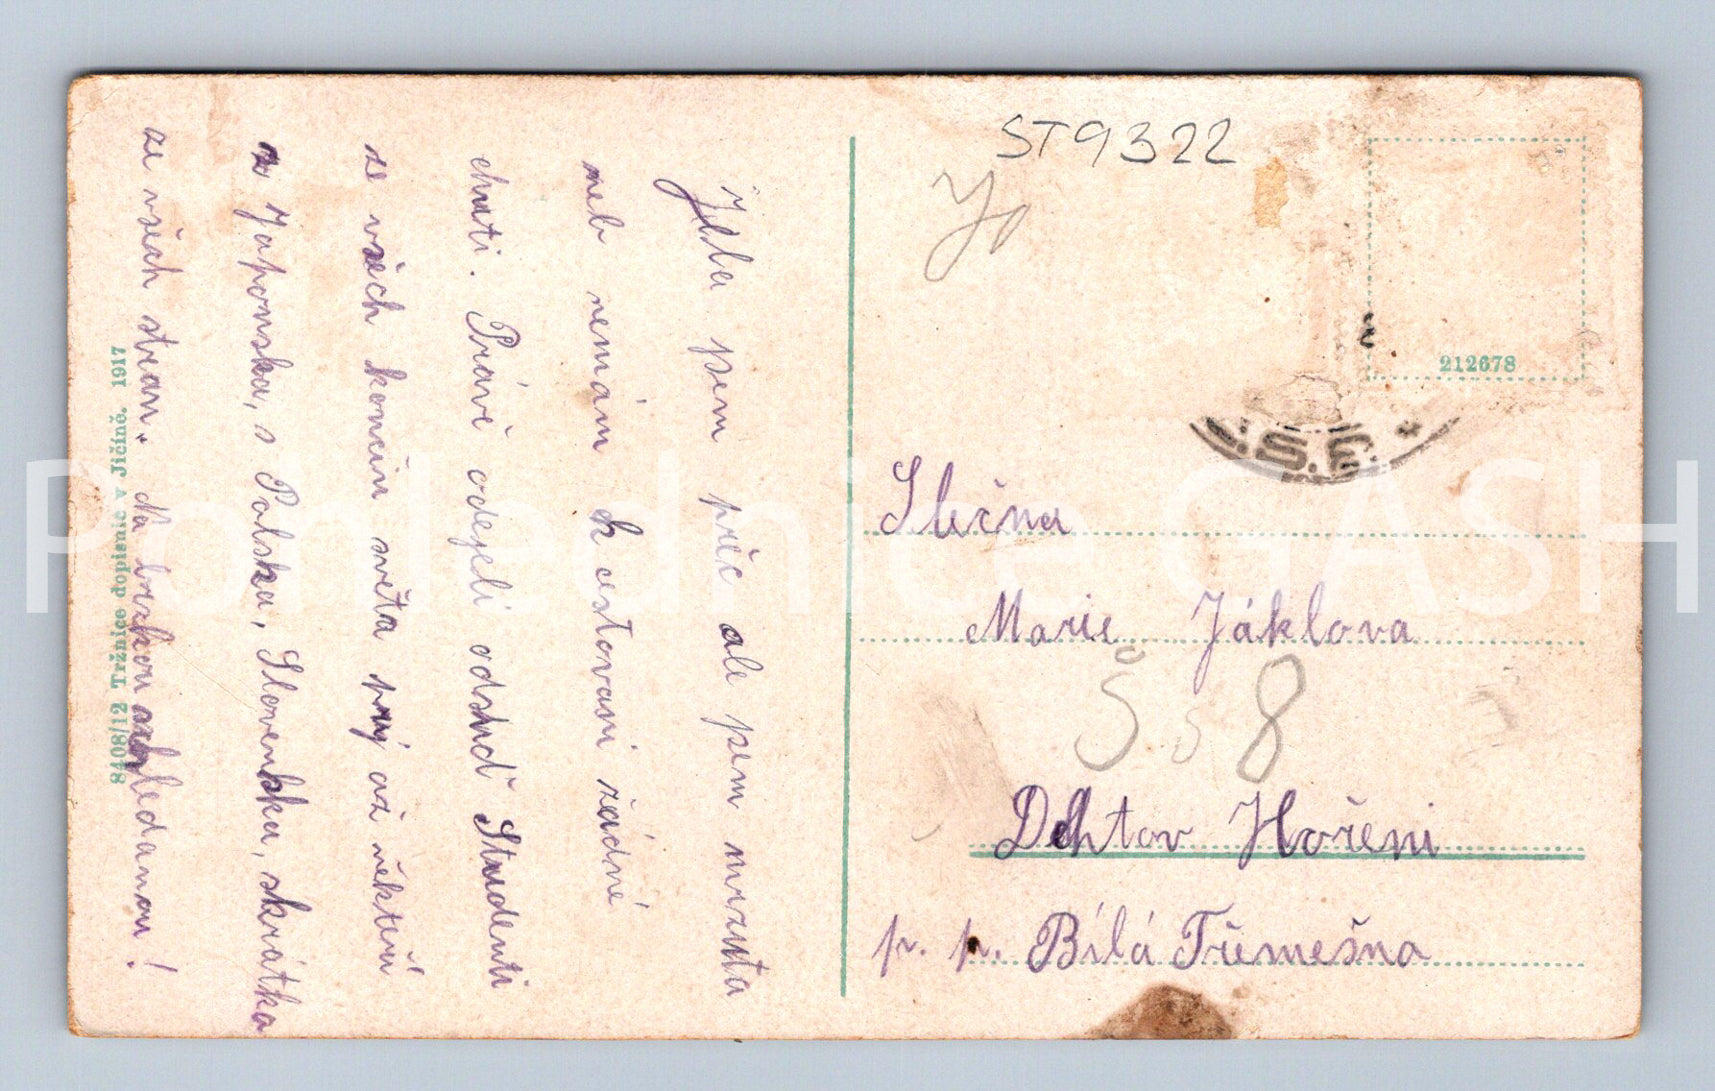 Jela psem préc ale psem mrzuta
neb nemám k cestovani žádné
chuti. Právě odejeli odsud Studenti
ze všech končin světa prý až někteří
z Japonska, s Polska, Slovenska, skrátka
ze všech stran. Na brzkou zhledanou!
8408/12 Tržnice dopisnic v Jičíně. 1917
ST9322
212678
Slečna
Marie Jáklova
Š 5 8
Dehtov Hořeni
p. p. Bílá Třemešna
Pohlednice GASH